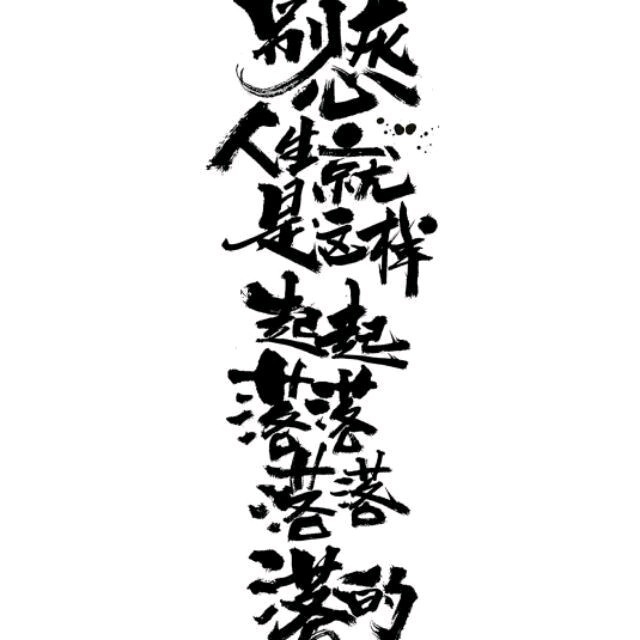 别灰
心
人生就
是这样
起起
落落
落落
落的